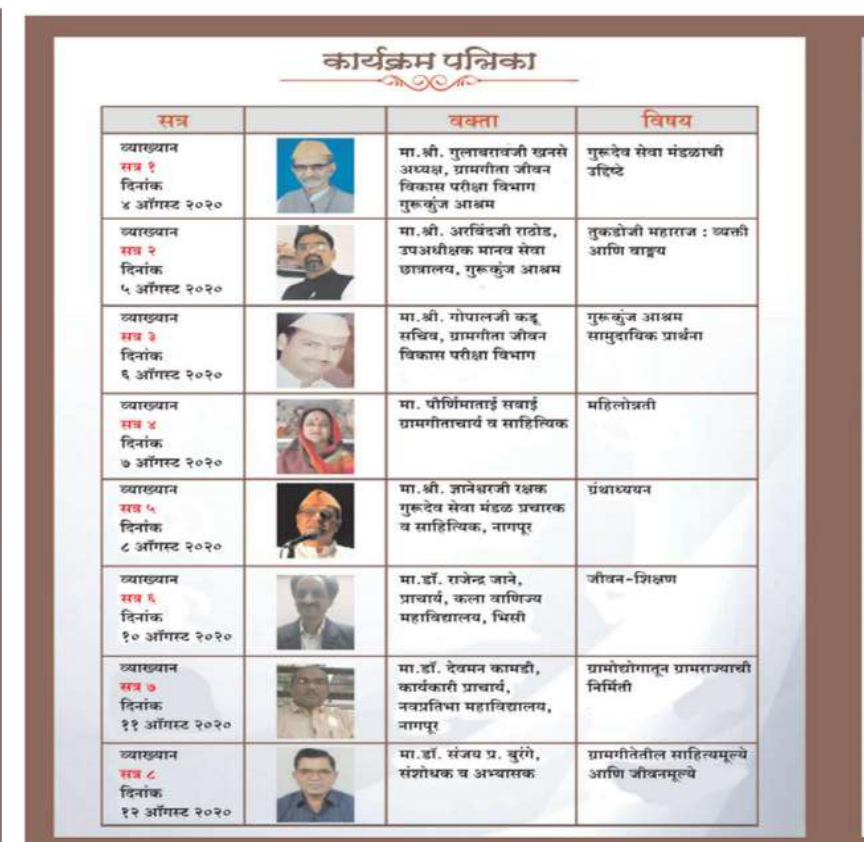 कार्यक्रम पत्रिका
सत्र वक्ता विषय
व्याख्यान
सत्र १
दिनांक
४ ऑगस्ट २०२०
मा.श्री. गुलाबरावजी खनसे
अध्यक्ष, ग्रामगीता जीवन
विकास परीक्षा विभाग
गुरूकुंज आश्रम
गुरूदेव सेवा मंडळाची
उद्दिष्टे
व्याख्यान
सत्र २
दिनांक
५ ऑगस्ट २०२०
मा.श्री. अरविंदजी राठोड,
उपअधीक्षक मानव सेवा
छात्रालय, गुरूकुंज आश्रम
तुकडोजी महाराज : व्यक्ती
आणि वाङ्मय
व्याख्यान
सत्र ३
दिनांक
६ ऑगस्ट २०२०
मा.श्री. गोपालजी कडू
सचिव, ग्रामगीता जीवन
विकास परीक्षा विभाग
गुरूकुंज आश्रम
सामुदायिक प्रार्थना
व्याख्यान
सत्र ४
दिनांक
७ ऑगस्ट २०२०
मा. पौर्णिमाताई सवाई
ग्रामगीताचार्य व साहित्यिक
महिलोन्नती
व्याख्यान
सत्र ५
दिनांक
८ ऑगस्ट २०२०
मा.श्री. ज्ञानेश्वरजी रक्षक
गुरूदेव सेवा मंडळ प्रचारक
व साहित्यिक, नागपूर
ग्रंथाध्ययन
व्याख्यान
सत्र ६
दिनांक
१० ऑगस्ट २०२०
मा.डॉ. राजेन्द्र जाने,
प्राचार्य, कला वाणिज्य
महाविद्यालय, भिसी
जीवन-शिक्षण
व्याख्यान
सत्र ७
दिनांक
११ ऑगस्ट २०२०
मा.डॉ. देवमन कामडी,
कार्यकारी प्राचार्य,
नवप्रतिभा महाविद्यालय,
नागपूर
ग्रामोद्योगातून ग्रामराज्याची
निर्मिती
व्याख्यान
सत्र ८
दिनांक
१२ ऑगस्ट २०२०
मा.डॉ. संजय प्र. बुरंगे,
संशोधक व अभ्यासक
ग्रामगीतेतील साहित्यमूल्ये
आणि जीवनमूल्ये